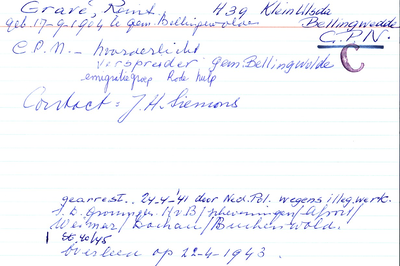 Graré, Reint H 39 Klein Ulsda
geb. 17-9-1904 te gem. Bellingwolde Bellingwedde
C.P.N.
C.P.N. - hoorverlicht C
verspreider gem. Bellingwolde
emigratiegroep Rode hulp
Contact = J.H. Siemons
gearrest.. 24-4-'41 door Ned. Pol. wegens illeg. werk.
S.D. Groningen / H.v.B / Scheveningen /
Weimar / Dachau / Buchenwald.
40/45
Overleden op 22-4-1943.